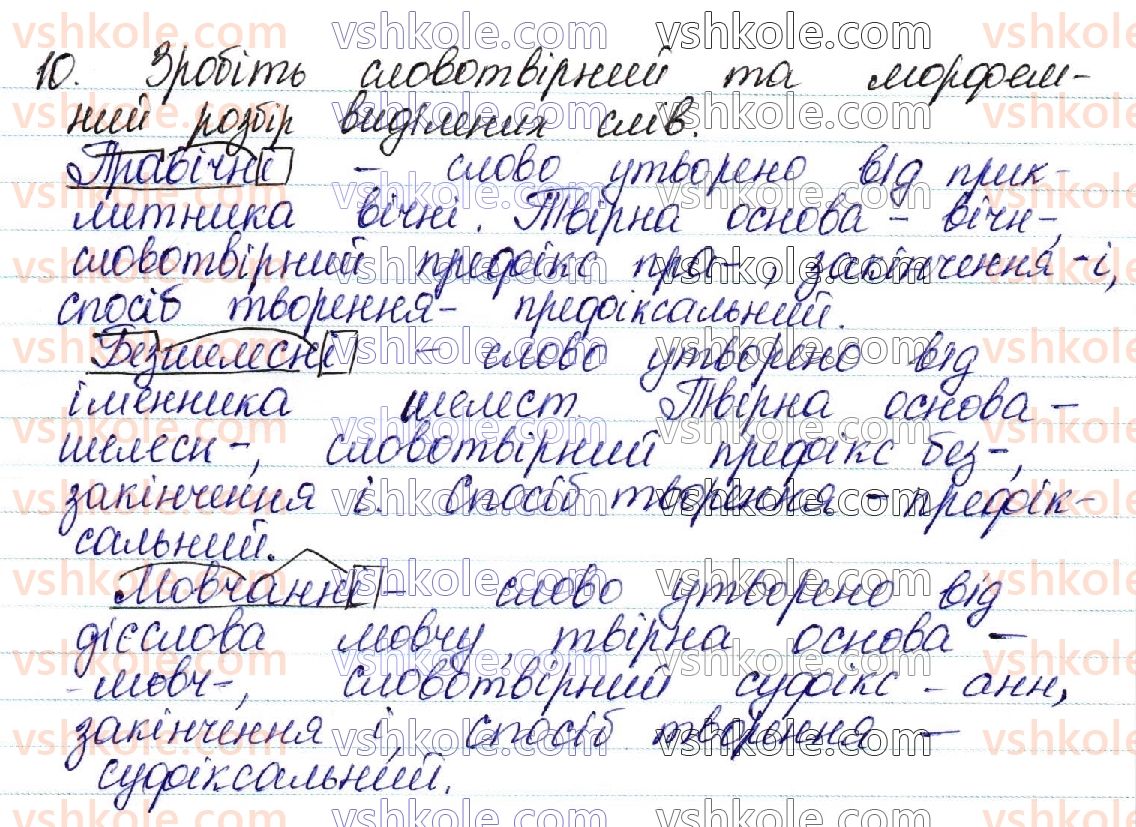 10. Зробіть словотвірний та морфем-
ний розбір виділених слів.
Правічні – слово утворено від прик-
метника вічні. Твірна основа – вічн-,
словотвірний префікс пра-, закінчення -і,
спосіб творення – префіксальний.
Безшелесні – слово утворено від
іменника шелест. Твірна основа –
шелесн-, словотвірний префікс без-,
закінчення і. Спосіб творення – префік-
сальний.
Мовчанні – слово утворено від
дієслова мовчу, твірна основа –
-мовч-, словотвірний суфікс – анн,
закінчення і, спосіб творення –
суфіксальний.